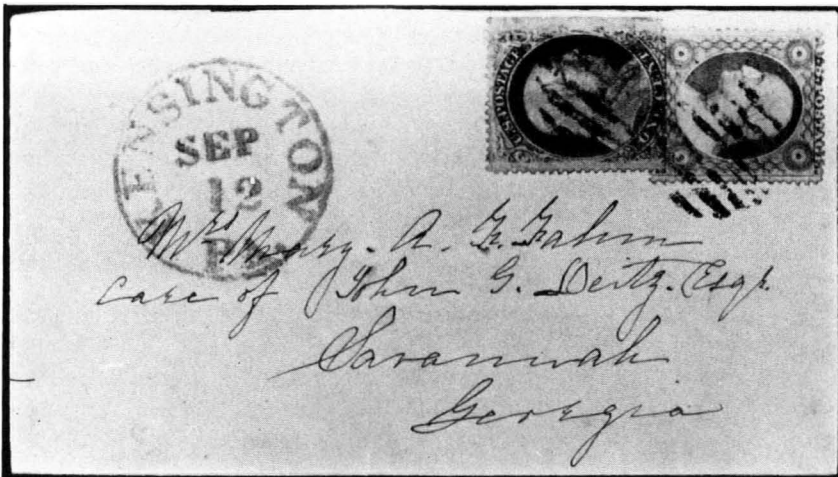 KENSINGTON
SEP
12
PA.
U.S. POSTAGE
Mrs Mary. A.
Care of John G. Deitz. Esqr.
Savannah
Georgia